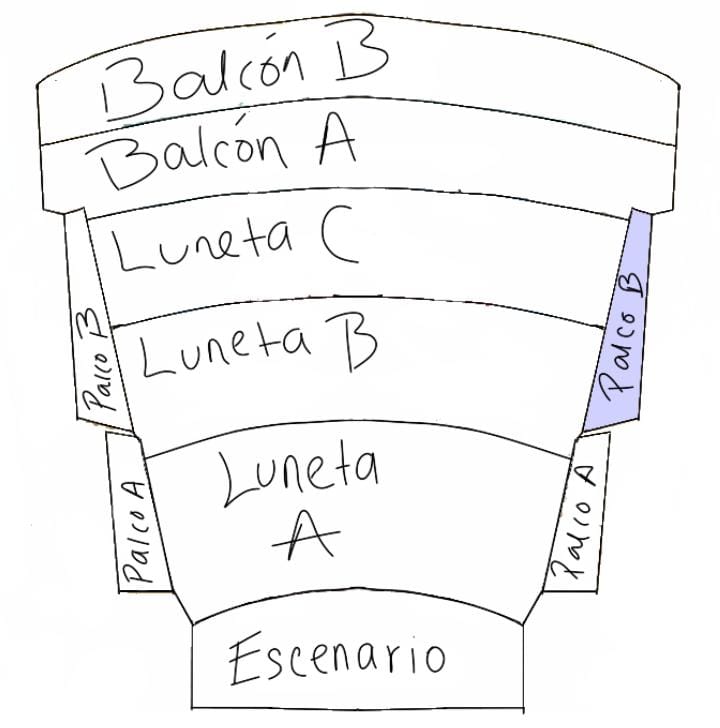 Balcón B
Balcón A
Luneta C
Palco B
Palco B
Luneta B
Luneta
A
Palco A
Palco A
Escenario